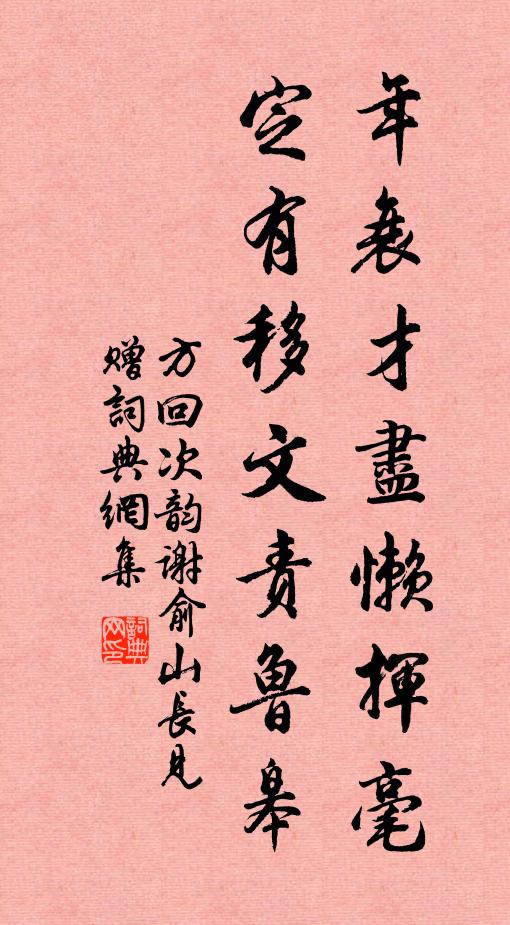 年衰才盡懶揮毫
定有移文責魯皋
方回次韵谢俞山長見
赠詞典網集
詞典
网印